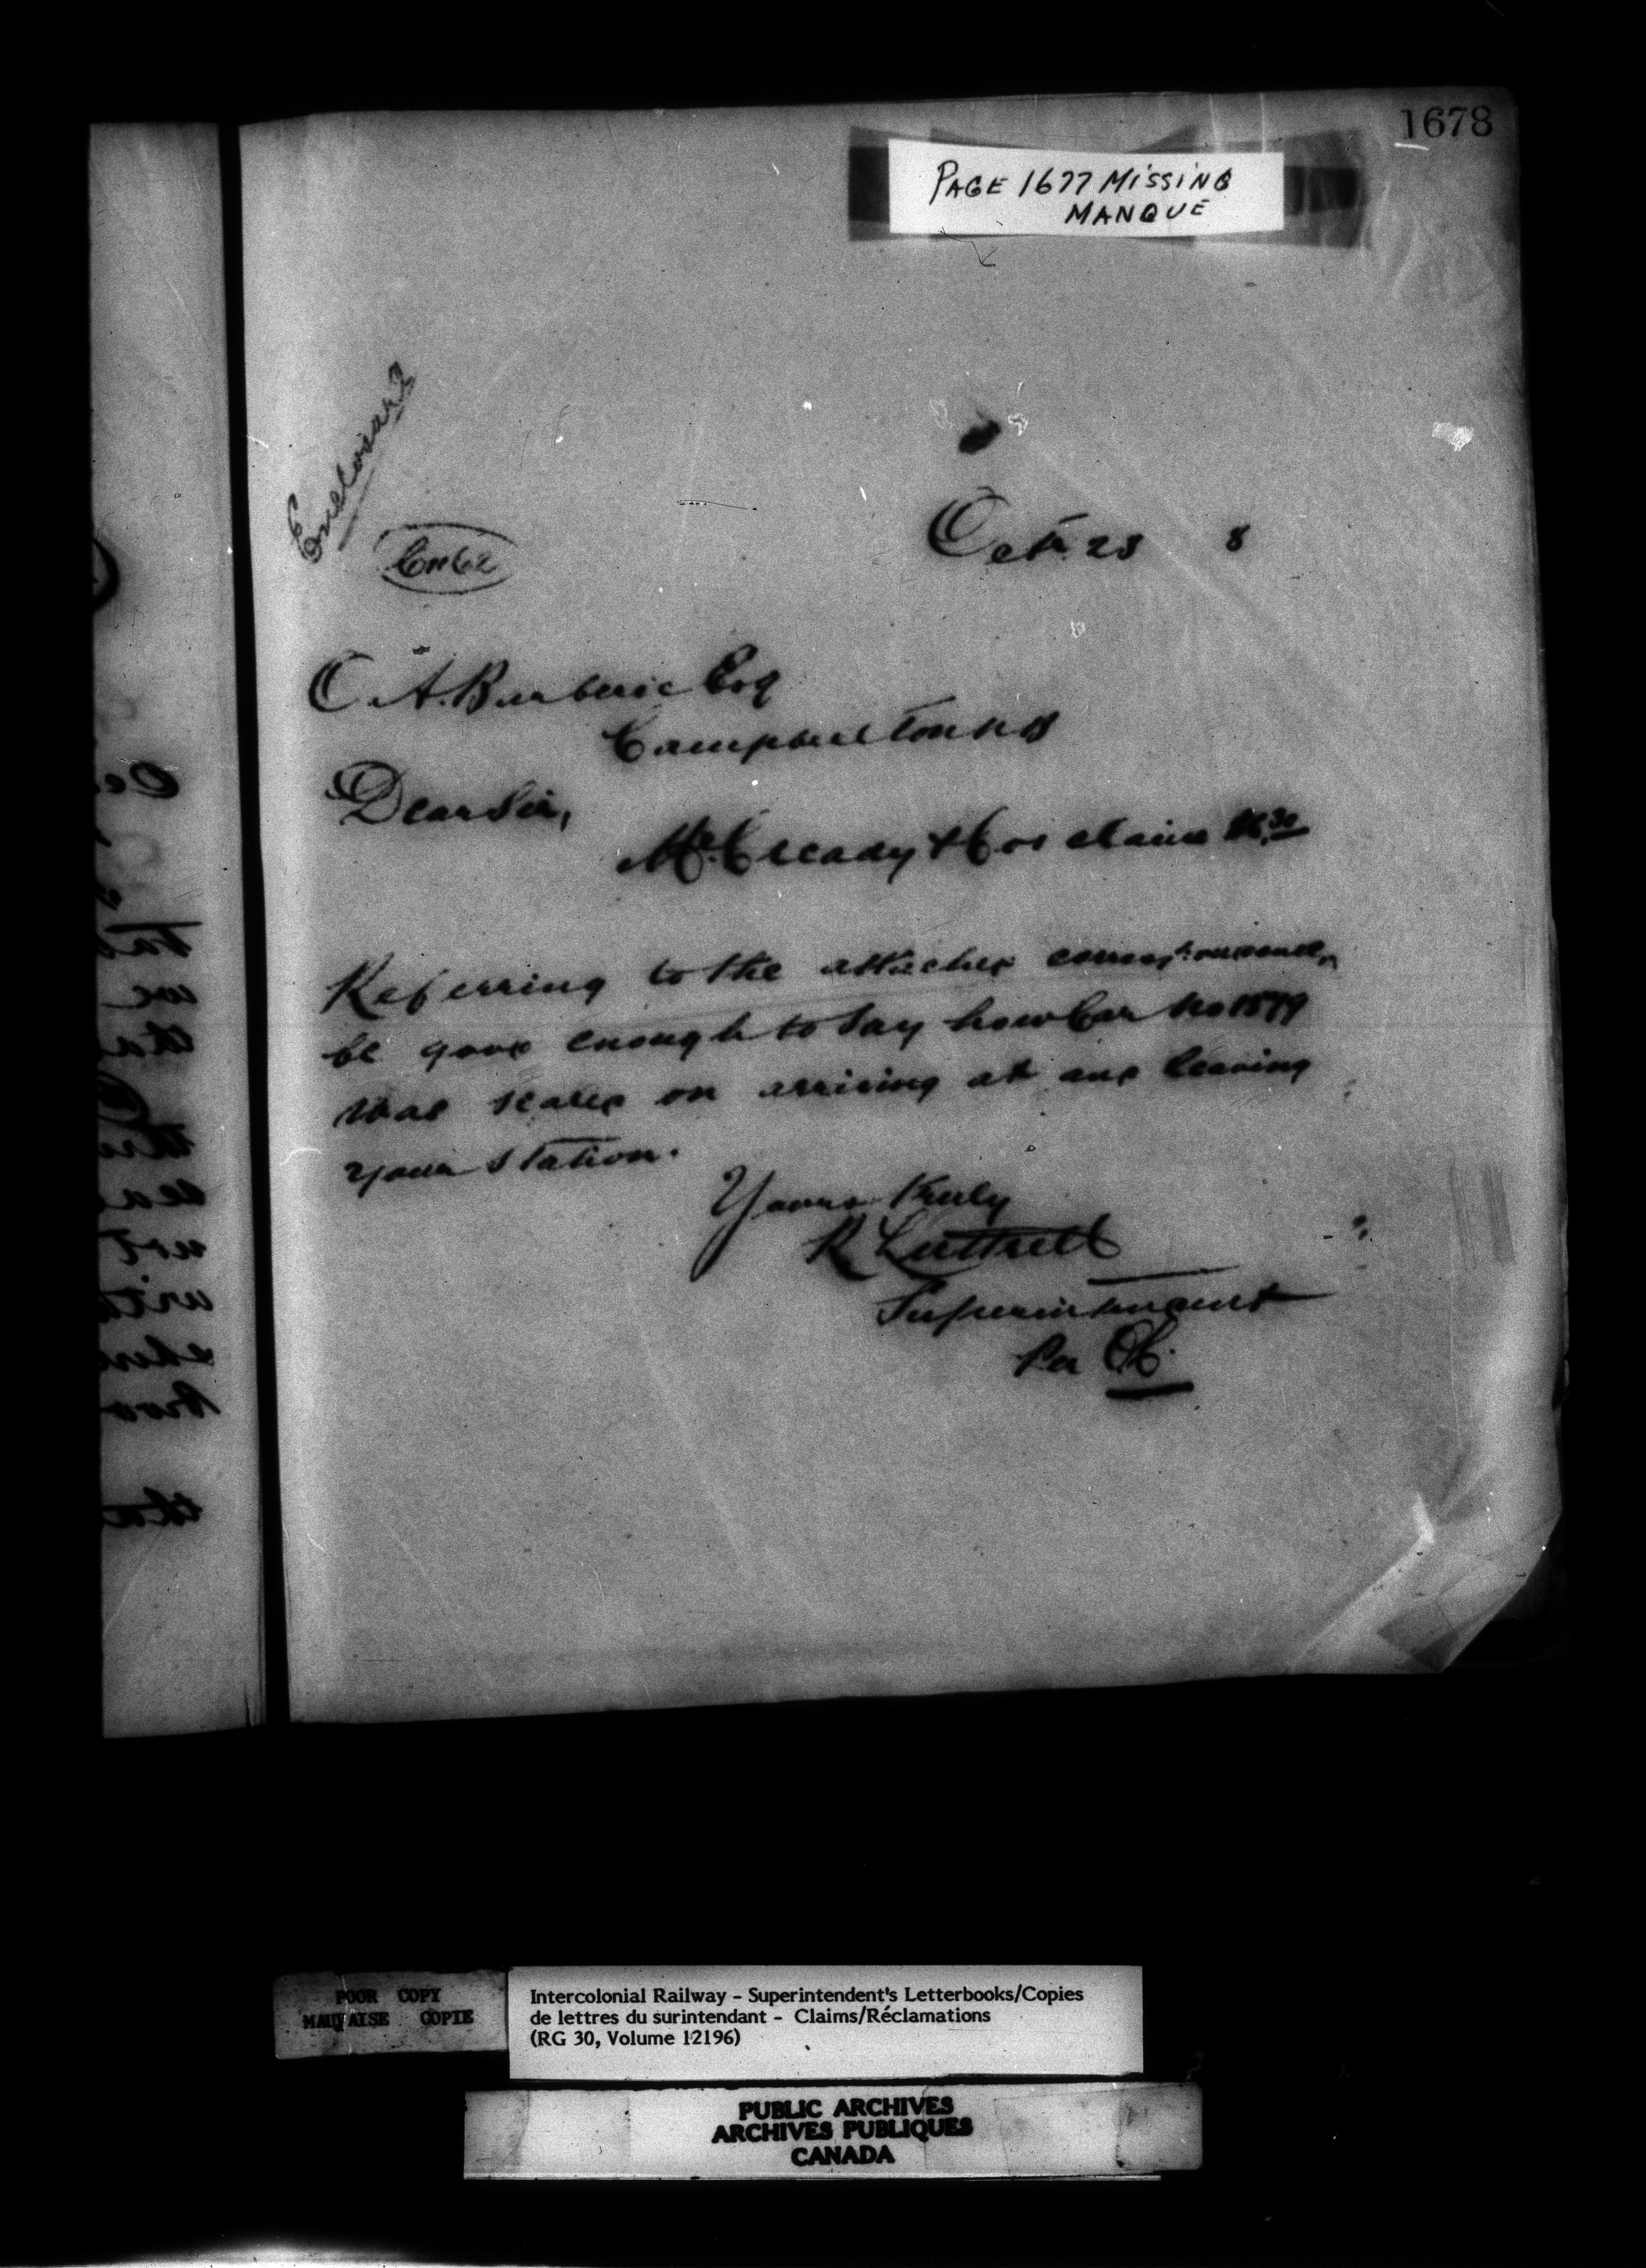 1678
PAGE 1677 MISSING
MANQUÉ
Octr. 23 8
A. Barberie Esq
Campbellton NB
Dear Sir,
McCready & Cos claim
Referring to the attached correspondence,
be good enough to say how Car No 1879
was sealed on arriving at and leaving
your station.
Yours truly
R Luttrell
Superintendent
Per
POOR COPY
MAUVAISE COPIE
Intercolonial Railway – Superintendent's Letterbooks/Copies
de lettres du surintendant – Claims/Réclamations
(RG 30, Volume 12196)
PUBLIC ARCHIVES
ARCHIVES PUBLIQUES
CANADA